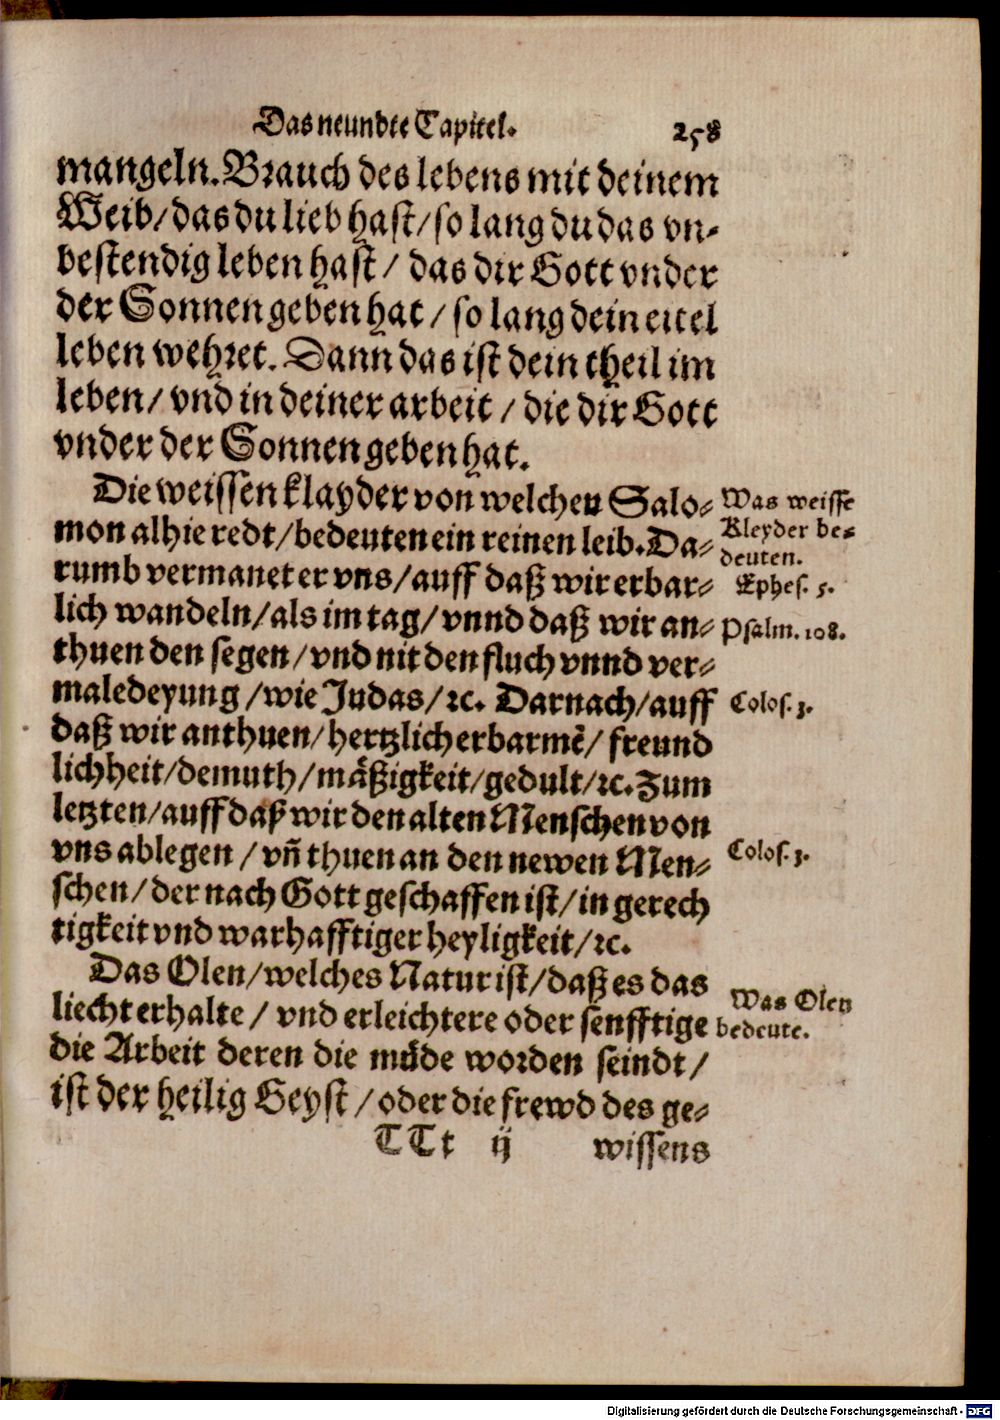 Das neundte Capitel. 258
mangeln. Brauch des lebens mit deinem
Weib/ das du lieb hast/ so lang du das vn-
bestendig leben hast/ das dir Gott vnder
der Sonnen geben hat/ so lang dein eitel
leben wehret. Dann das ist dein theil im
leben/ vnd in deiner arbeit/ die dir Gott
vnder der Sonnen geben hat.
Die weissen klayder von welchen Salo-
mon alhie redt/ bedeuten ein reinen leib. Da-
rumb vermanet er vns/ auff daß wir erbar-
lich wandeln/ als im tag/ vnnd daß wir an-
thuen den segen/ vnd nit den fluch vnnd ver-
maledeyung/ wie Judas/ ꝛc. Darnach/ auff
daß wir anthuen/ hertzlich erbarmẽ/ freund
lichheit/ demuth/ mäßigkeit/ gedult/ ꝛc. Zum
letzten/ auff daß wir den alten Menschen von
vns ablegen/ vñ thuen an den newen Men-
schen/ der nach Gott geschaffen ist/ in gerech
tigkeit vnd warhafftiger heyligkeit/ ꝛc.
Das Olen/ welches Natur ist/ daß es das
liecht erhalte/ vnd erleichtere oder senfftige
die Arbeit deren die müde worden seindt/
ist der heilig Geyst/ oder die frewd des ge-
TTt ij wissens
Was weisse
Kleyder be-
deuten.
Ephes. 5.
Psalm. 108.
Colos. 3.
Colos. 3.
Was Olen
bedeute.
Digitalisierung gefördert durch die Deutsche Forschungsgemeinschaft - DFG